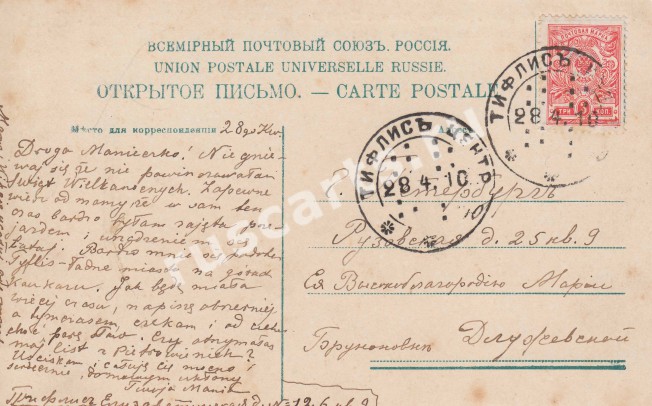 ВСЕМІРНЫЙ ПОЧТОВЫЙ СОЮЗЪ. РОССІЯ.
UNION POSTALE UNIVERSELLE RUSSIE.
ОТКРЫТОЕ ПИСЬМО. — CARTE POSTALE
Мѣсто для корреспонденціи
28go Kw.
Droga Manieczko! Nie gniewaj się że nie powinszowałam
Świąt Wielkanocnych. Zapewne
wiesz od mamy że w tym
czas bardzo byłam zajęta
i urządzeniem się
tutaj. Bardzo mnie się podoba
Tyflis - ładne miasto, na górach
Kaukazu. Jak będę miała
więcej czasu, napiszę obszerniej
a tymczasem czekam i od Ciebie
choć parę słów. Czy otrzymałaś
mój list z
Uściskam i całuję Cię mocno i
serdecznie,
Twoja Mania
Тифлисъ д. № 12, б кв 9
ПОЧТОВАЯ МАРКА
3
ТРИ КОП
ТИФЛИСЪ
28 4 10
ТИФЛИСЪ ЦЕНТР
28 4 10
Петербургъ
Рузовская д. 25 кв. 9
Ея Высокоблагородію Маріи
Бруноновнѣ Длужевской
ruscards.ru